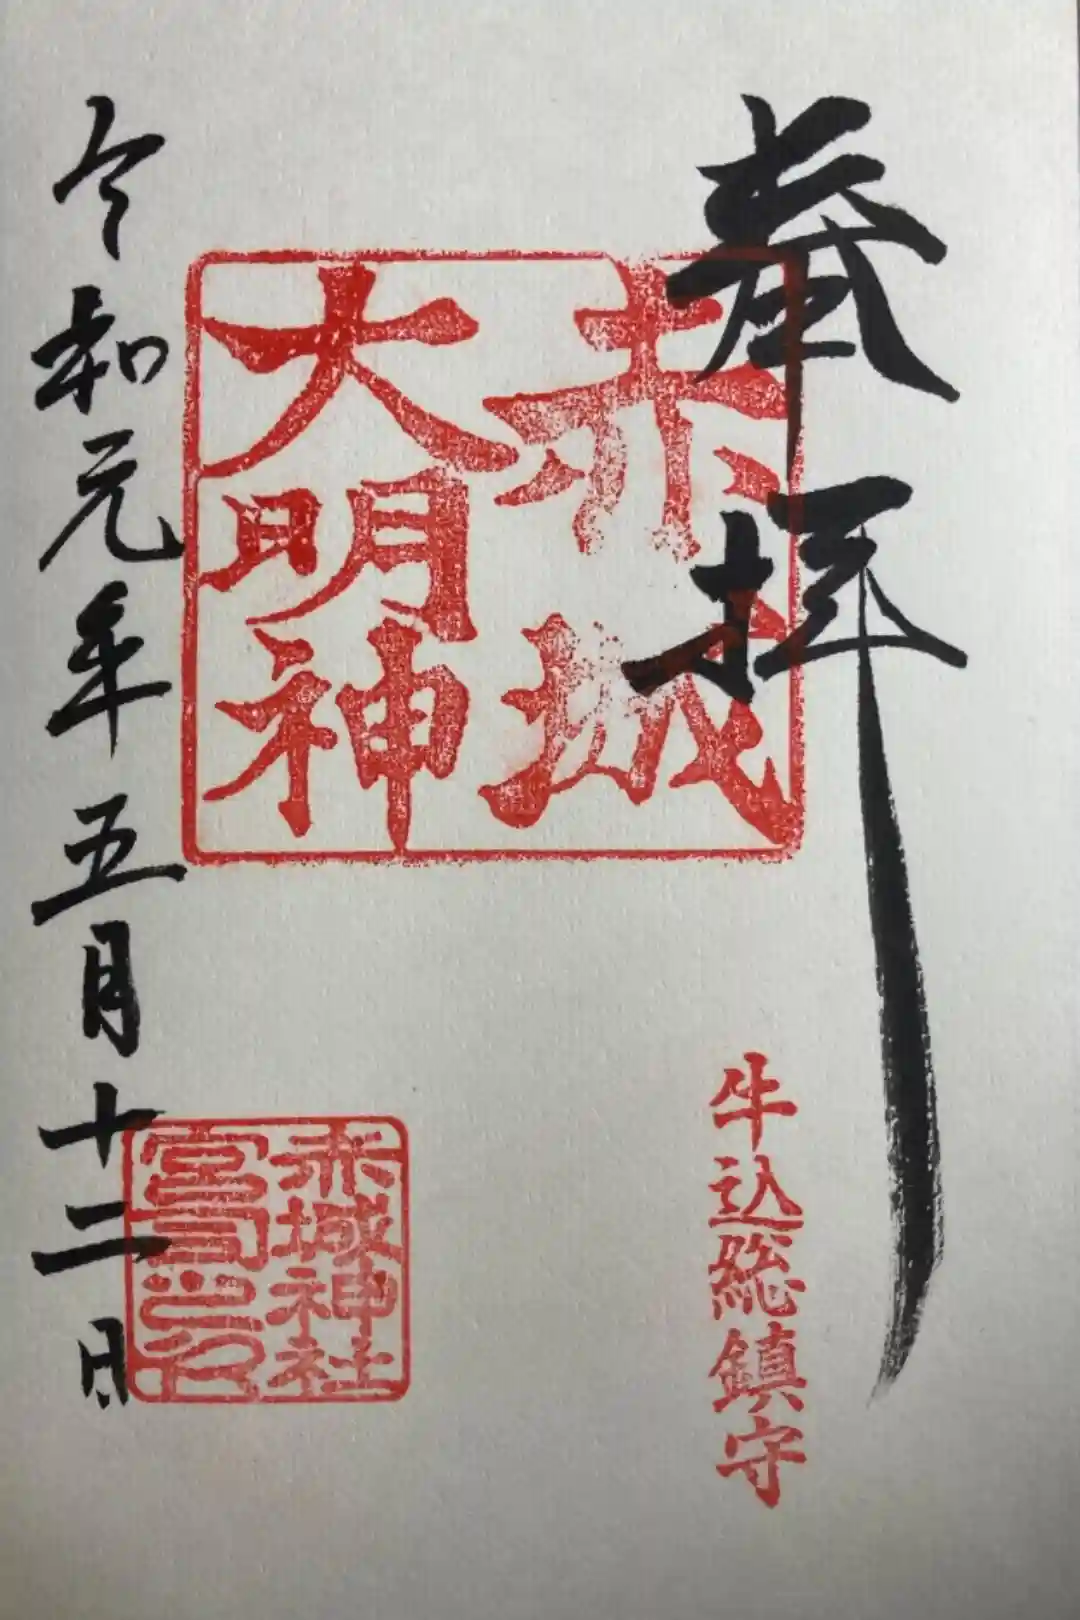 奉拝
牛込総鎮守
赤城
大明神
赤城神社
宮司之印
令和元年五月十二日